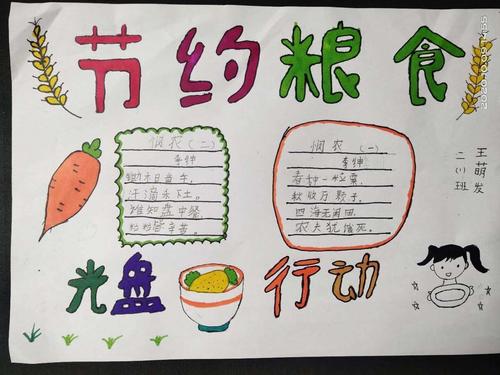 节约粮食
悯农(二)
李绅
锄禾日当午,
汗滴禾下土。
谁知盘中餐,
粒粒皆辛苦。
悯农(一)
李绅
春种一粒粟,
秋收万颗子。
四海无闲田,
农夫犹饿死。
王萌发
二(1)班
光盘
行动